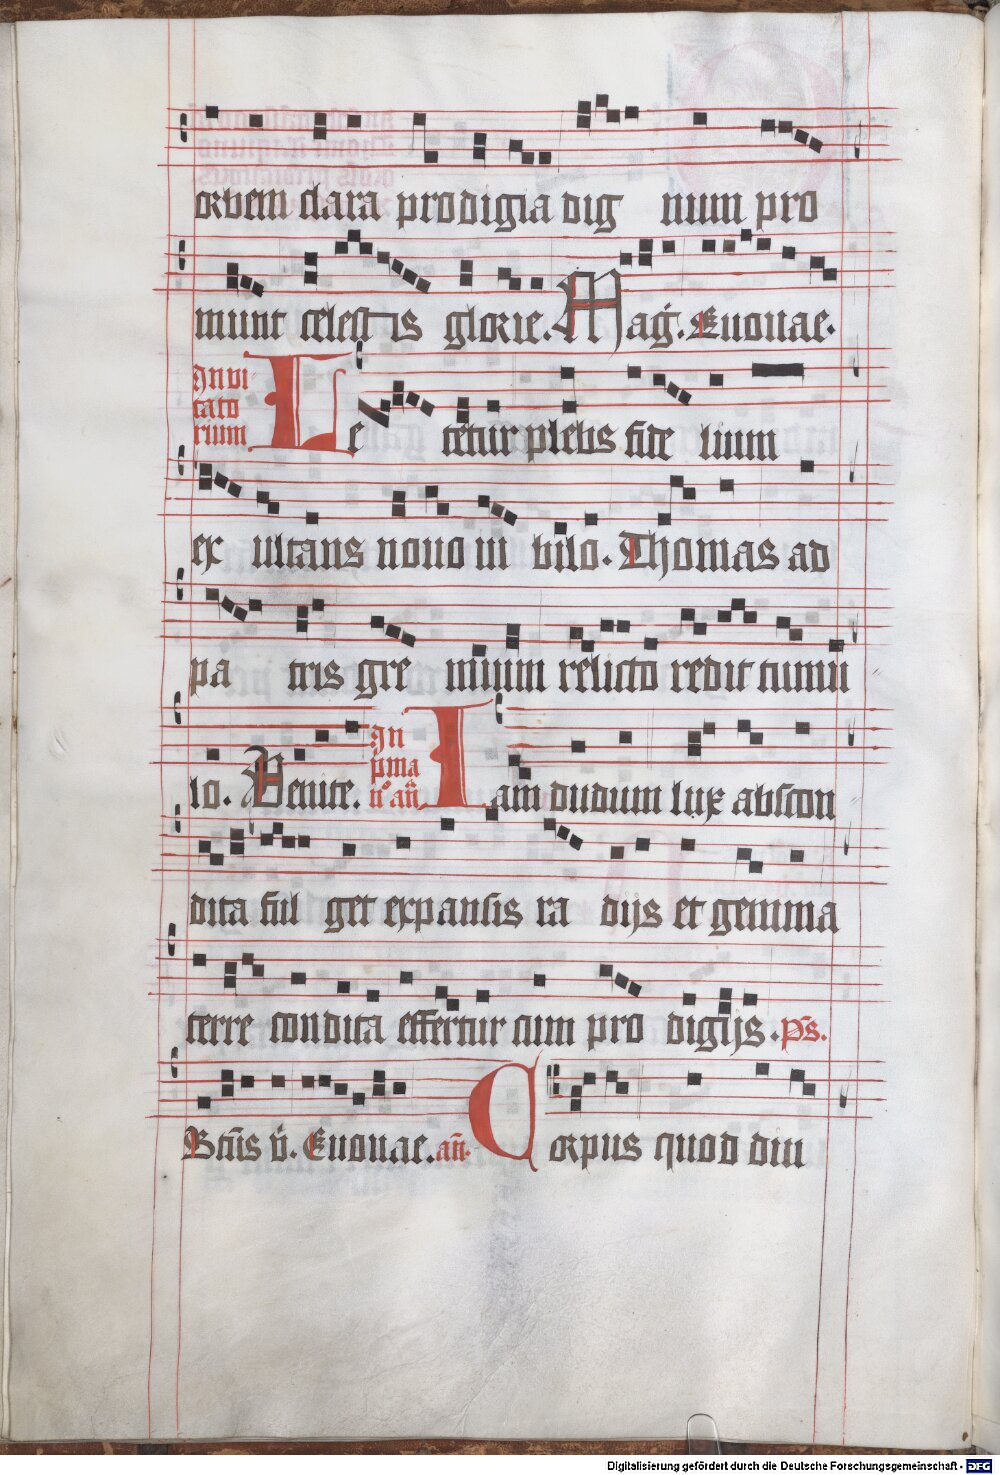 orbem clara prodigia dig num pro
munt celestis glorie. Mag̃. Euouae.
Inui
tato
rium
Le tetur plebs fide lium
ex ultans nouo iu bilo. Thomas ad
pa tris gre mium relicto redit tumu
lo. Venite.
In
pma
n° añ
Iam dudum lux abscon
dita ful get expansis ra dijs et gemma
terre condita effertur cum pro digijs. p̄s.
Btūs v̄. Euouae. añ. Corpus quod diu
Digitalisierung gefördert durch die Deutsche Forschungsgemeinschaft - DFG